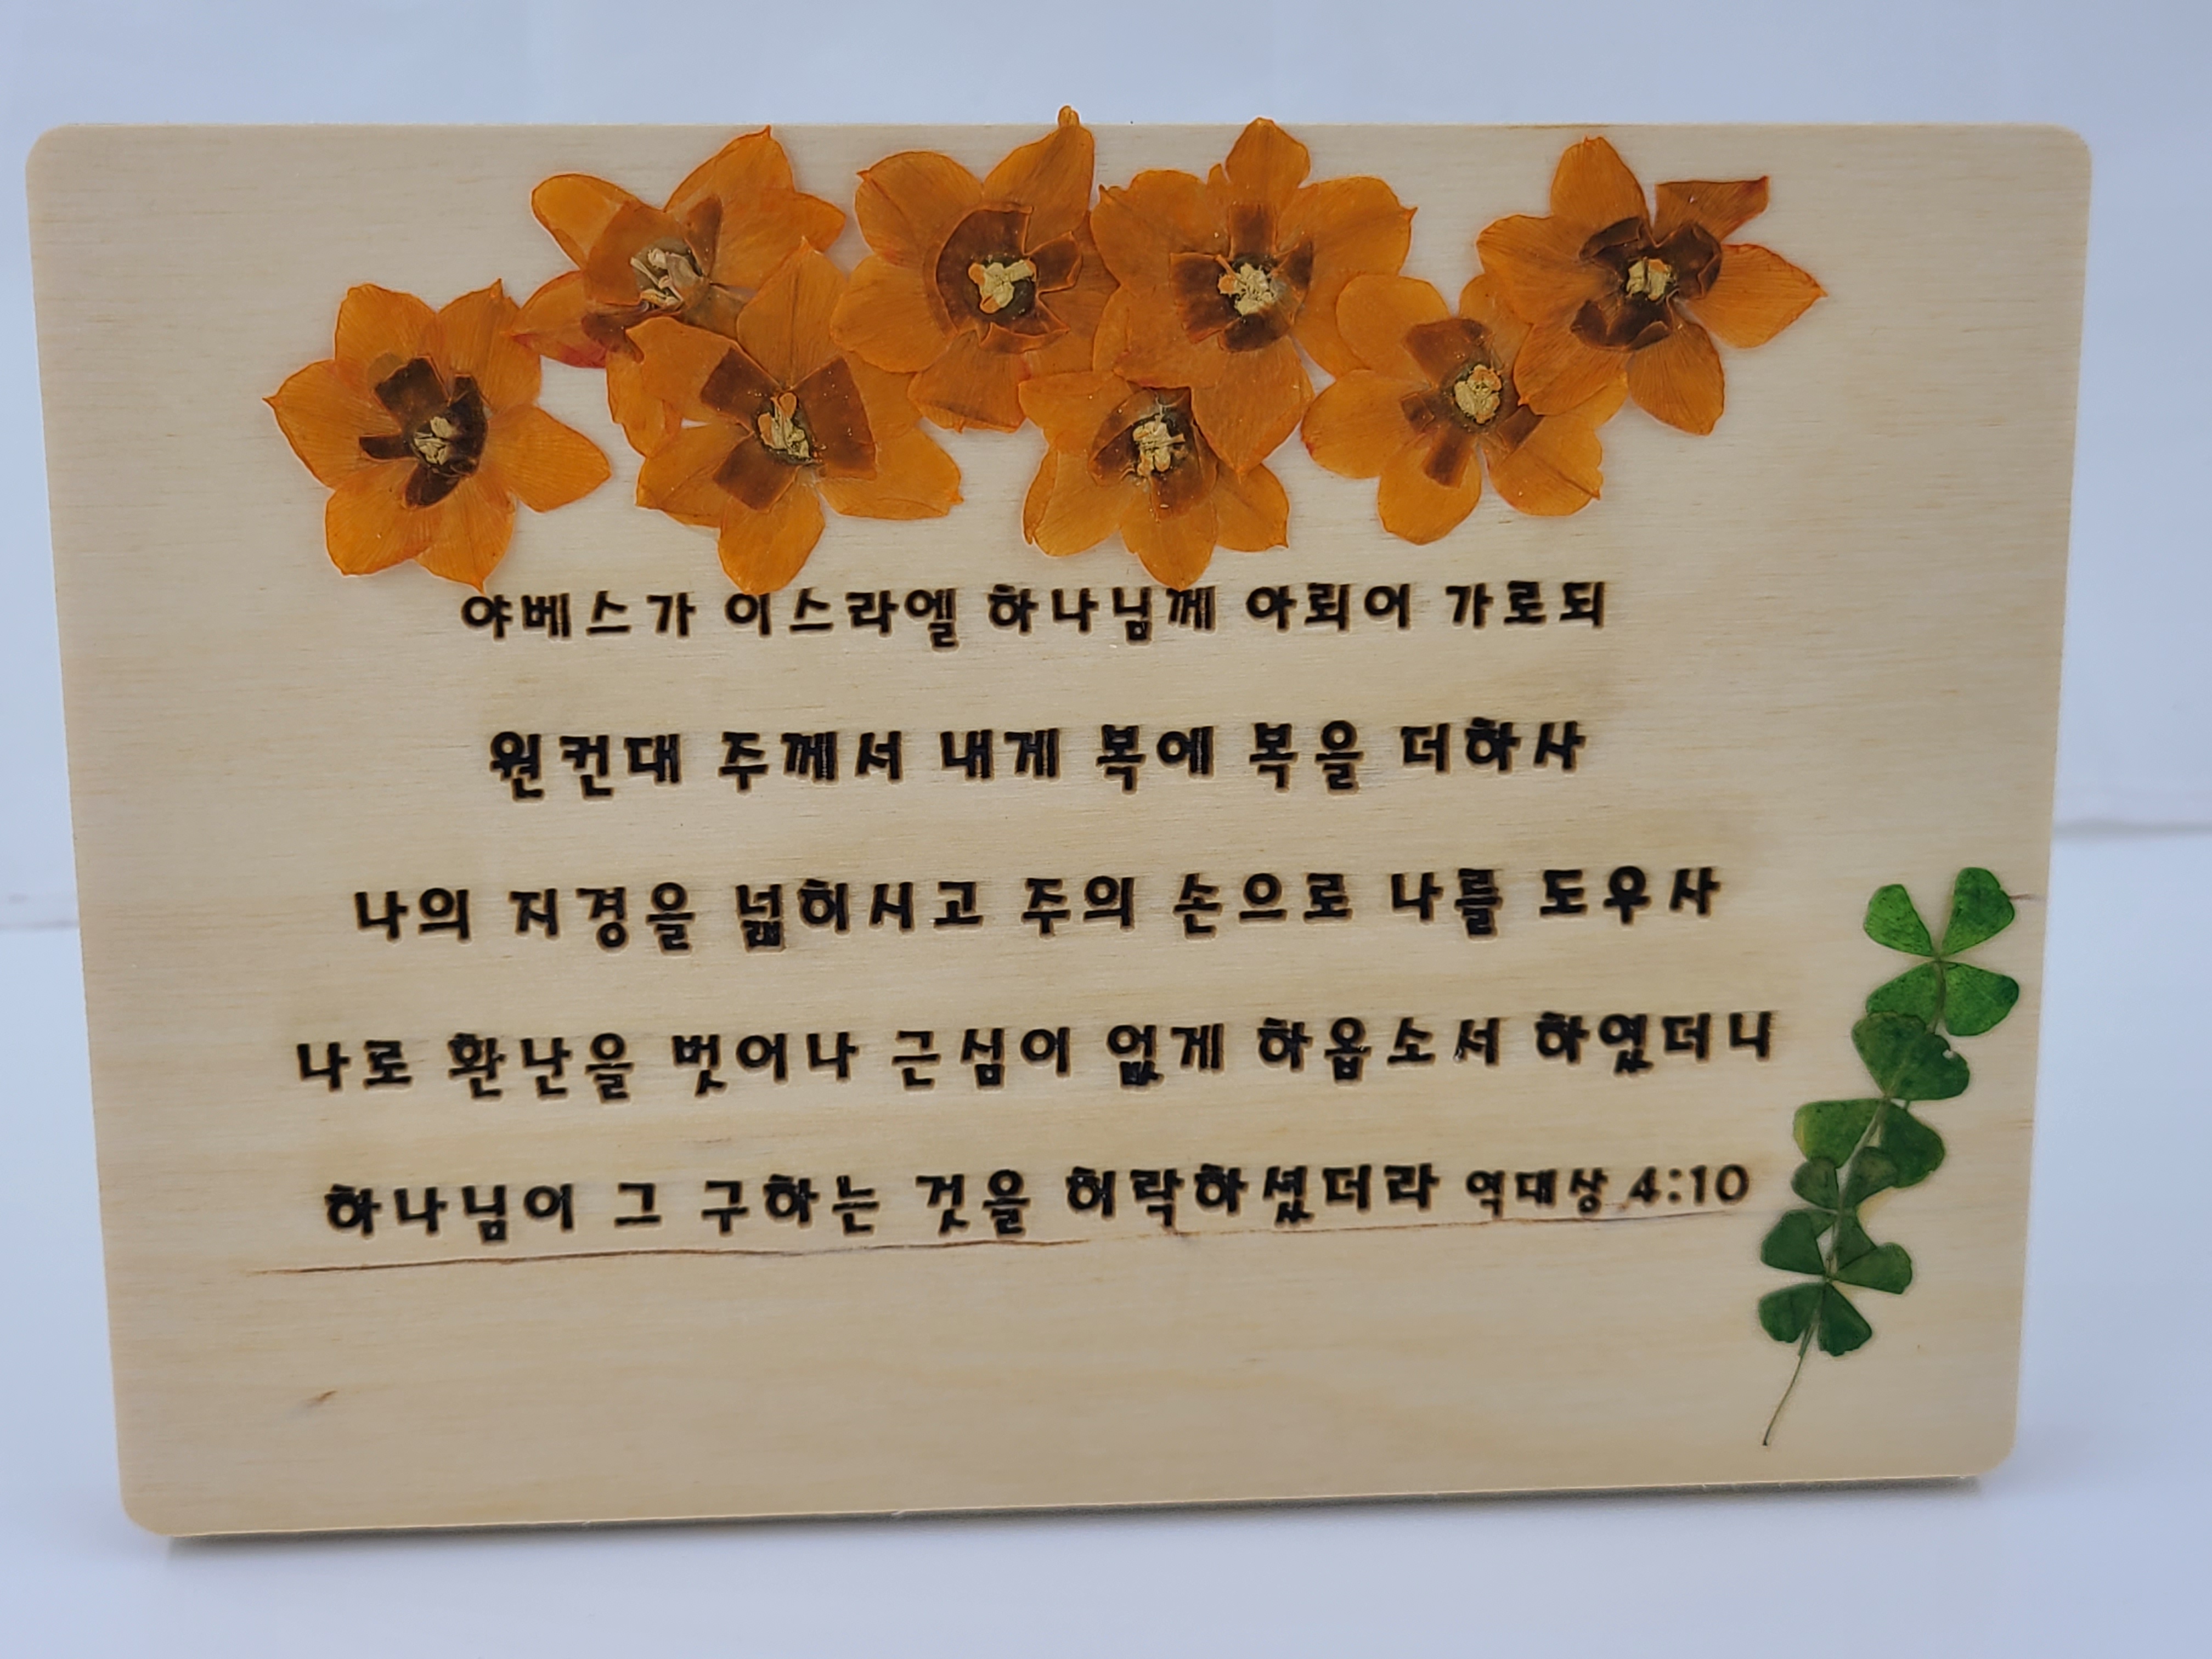 야베스가 이스라엘 하나님께 아뢰어 가로되
원컨대 주께서 내게 복에 복을 더하사
나의 지경을 넓히시고 주의 손으로 나를 도우사
나로 환난을 벗어나 근심이 없게 하옵소서 하였더니
하나님이 그 구하는 것을 허락하셨더라 역대상 4:10